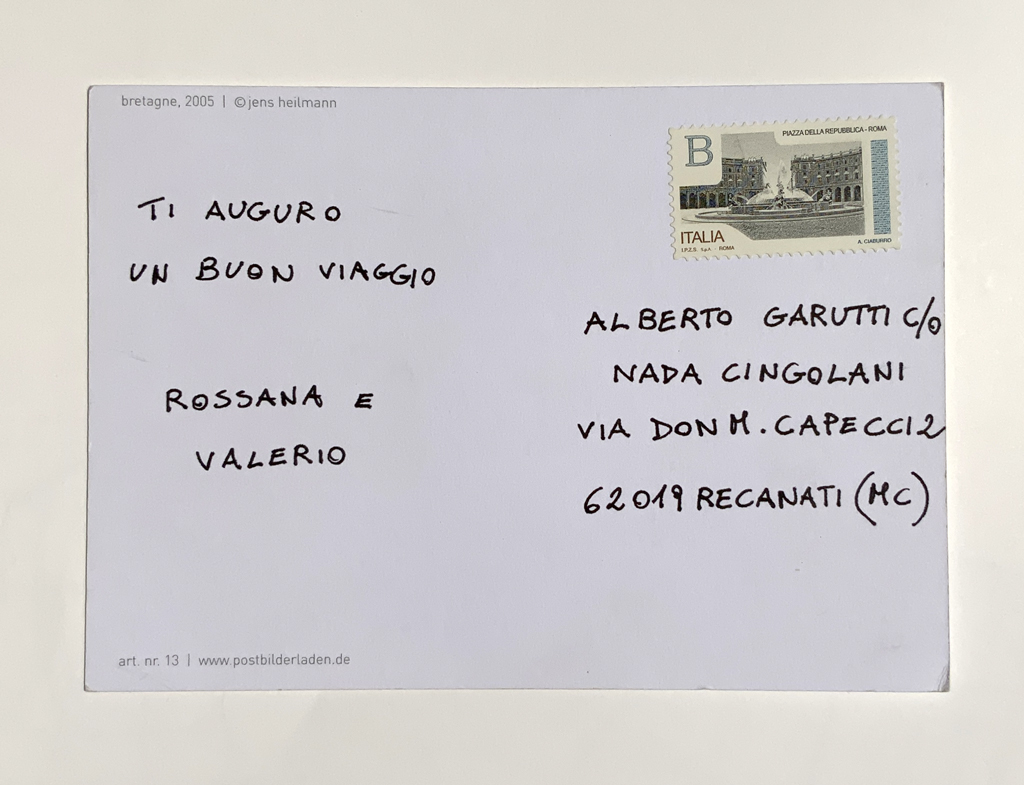 bretagne, 2005 | ©jens heilmann
TI AUGURO
UN BUON VIAGGIO
ROSSANA E
VALERIO
art. nr. 13 | www.postbilderladen.de
B
PIAZZA DELLA REPUBBLICA - ROMA
ITALIA
I.P.Z.S. S.p.A. - ROMA
A. CIABURRO
ALBERTO GARUTTI C/O
NADA CINGOLANI
VIA DON M. CAPECCI 2
62019 RECANATI (MC)